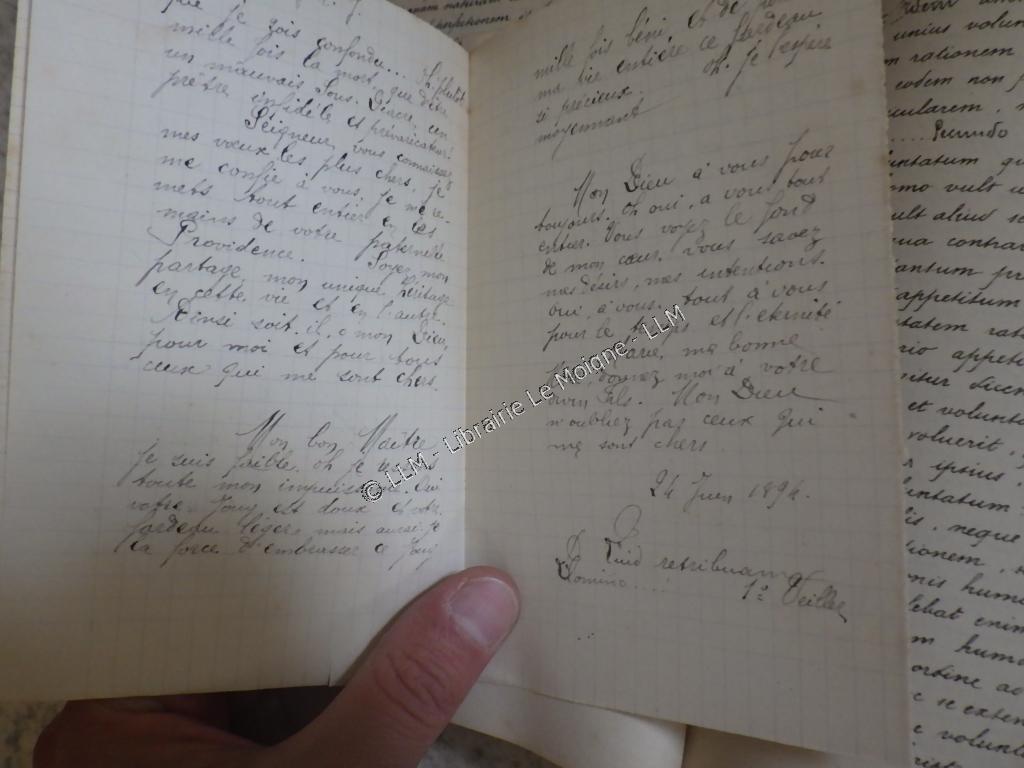 que je sois confondu... Oh plutôt
mille fois la mort, que d'être
un mauvais Sous-Diacre, un
prêtre infidèle et prévaricateur!
Seigneur, vous connaissez
mes vœux les plus chers, je
me confie à vous, je me re-
mets tout entier en les
mains de votre paternelle
Providence. Soyez mon
partage, mon unique héritage
en cette vie et en l'autre.
Ainsi soit-il, ô mon Dieu,
pour moi et pour tous
ceux qui me sont chers.
Mon bon Maître
je suis faible, oh je
toute mon impuissance. Oui
votre Joug est doux et votre
fardeau léger, mais aurai-je
la force d'embrasser ce Joug
mille fois béni, et de
ma vie entière ce fardeau
si précieux. Oh. je l'espère
moyennant
Mon Dieu à vous pour
toujours. Oh oui, à vous tout
entier. Vous voyez le fond
de mon cœur, vous savez
mes désirs, mes intentions.
oui, à vous, tout à vous
pour le temps et l'éternité
ma bonne
donnez moi à votre
Fils. Mon Dieu
n'oubliez pas ceux qui
me sont chers.
24 Juin 1894.
Quid retribuam
Domino....
© LLM - Librairie Le Moigne - LLM
unius volun
rationem
eodem non
cularem,
.... Secundo
untatum qu
mo vult
ult alius
ua contra
antum pr
appetitum
tatem rat
rio appeti
citur
et volunta
voluerit,
ipsius,
untatum
is, neque
tionem,
nis huma
lebat enim
m huma
ordine ad
se exten
voluntа